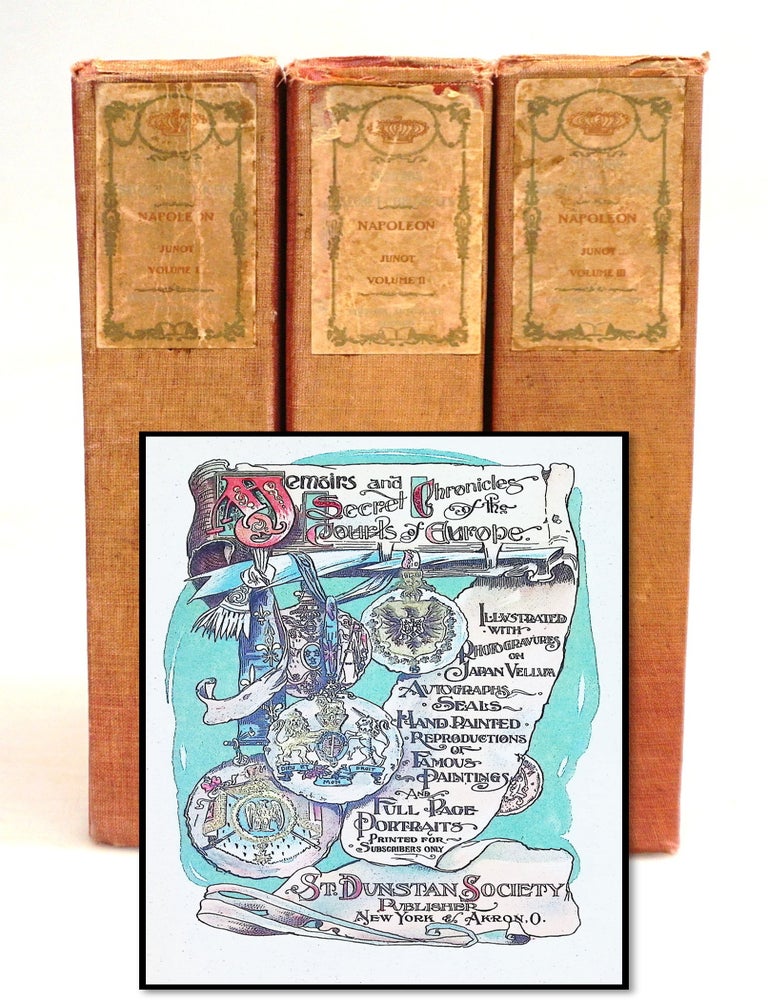 NAPOLEON
JUNOT
VOLUME I
NAPOLEON
JUNOT
VOLUME II
NAPOLEON
JUNOT
VOLUME III
Memoirs and
Secret Chronicles
of the
Courts of Europe.
ILLUSTRATED
WITH
PHOTOGRAVURES
ON
JAPAN VELLUM
AUTOGRAPHS
SEALS
HAND PAINTED
REPRODUCTIONS
OF
FAMOUS
PAINTINGS
AND
FULL PAGE
PORTRAITS
PRINTED FOR
SUBSCRIBERS ONLY
DIEU ET MON DROIT
ST. DUNSTAN SOCIETY
PUBLISHER
NEW YORK & AKRON, O.